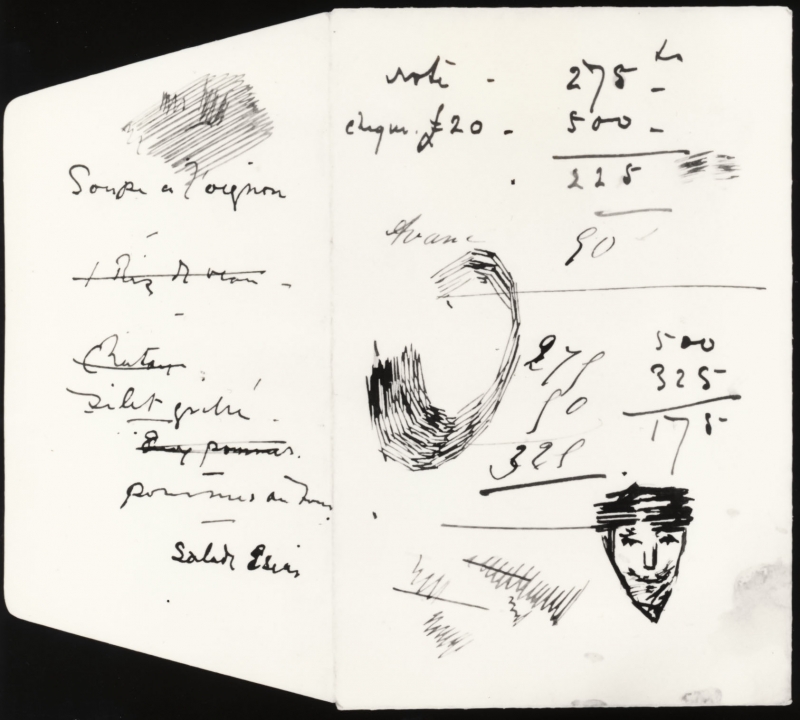 Soupe à l'oignon
Ris de veau -
Chateau
Filet grillé.
pommes.
pommes au four
Salade
note - 275 -
cheque. £20 - 500 -
225
Avance 50
275
50
325
500
325
175